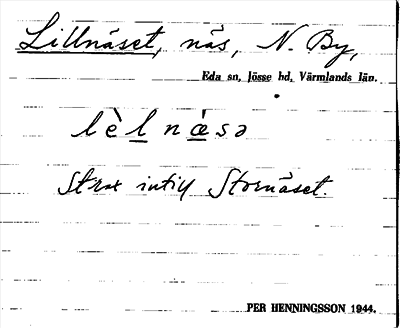 Lillnäset, näs, N. By,
Eda sn, Jösse hd, Värmlands län.
lèlnæ̀sə
Strax intill Stornäset.
PER HENNINGSSON 1944.